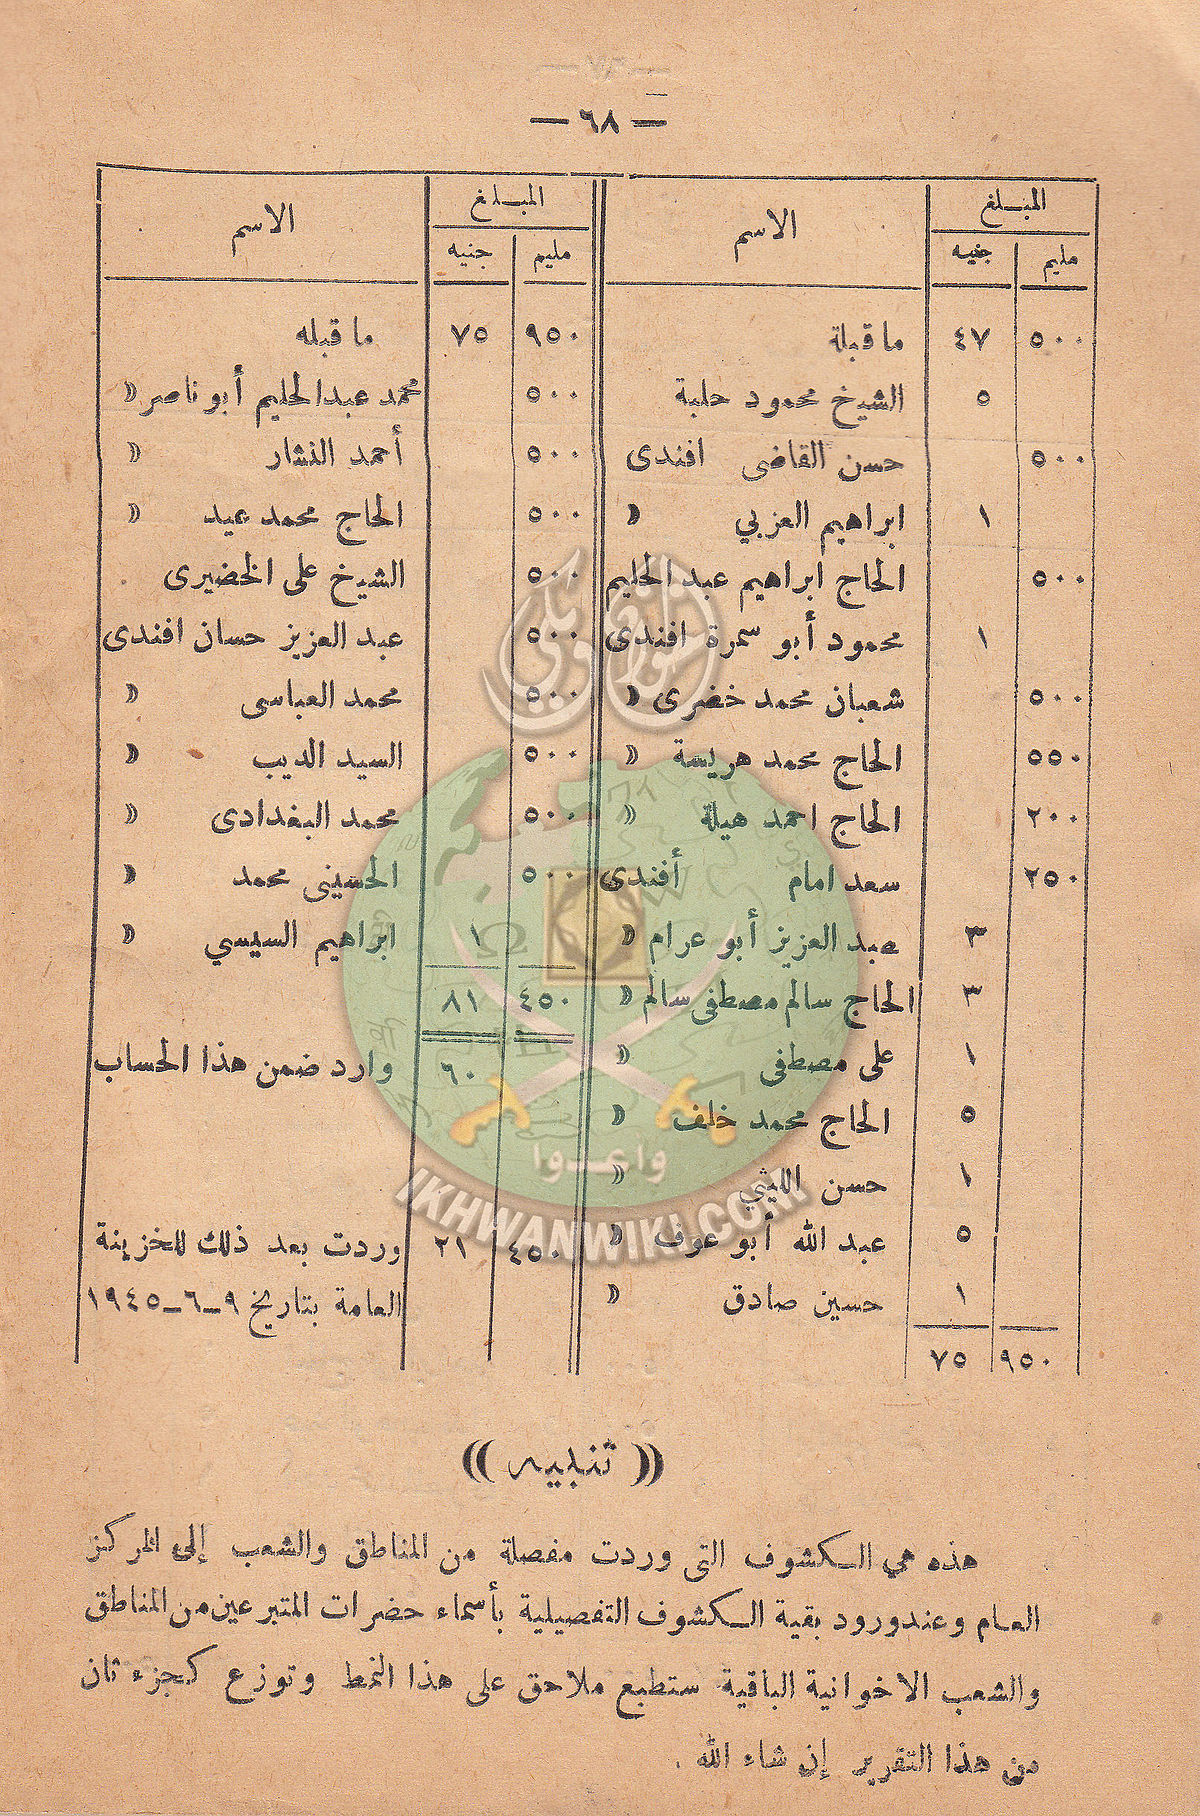 — ٦٨ —
المبلغ الاسم
مليم جنيه
٥٠٠ ٤٧ ما قبلة
٥ الشيخ محمود حلبة
٥٠٠ حسن القاضى افندى
١ ابراهيم العزبي »
٥٠٠ الحاج ابراهيم عبد الحليم
١ محمود أبو سمرة افندى
٥٠٠ شعبان محمد خضرى »
٥٥٠ الحاج محمد هريسة »
٢٠٠ الحاج احمد هيلة »
٢٥٠ سعد امام أفندى
٣ عبد العزيز أبو عرام »
٣ الحاج سالم مصطفى سالم »
١ على مصطفى »
٥ الحاج محمد خلف »
١ حسن الليثي »
٥ عبد الله أبو عوف »
١ حسين صادق »
٩٥٠ ٧٥
المبلغ الاسم
مليم جنيه
٩٥٠ ٧٥ ما قبله
٥٠٠ محمد عبدالحليم أبو ناصر »
٥٠٠ أحمد النشار »
٥٠٠ الحاج محمد عيد »
٥٠٠ الشيخ على الخضيرى
٥٠٠ عبد العزيز حسان افندى
٥٠٠ محمد العباسى »
٥٠٠ السيد الديب »
٥٠٠ محمد البغدادى »
٥٠٠ الحسينى محمد »
١ ابراهيم السيسي »
٤٥٠ ٨١
٦٠ وارد ضمن هذا الحساب
٤٥٠ ٢١ وردت بعد ذلك للخزينة
العامة بتاريخ ٩-٦-١٩٤٥
واعدوا
IKHWANWIKI.COM
(( تنبيه ))
هذه هي الكشوف التى وردت مفصلة من المناطق والشعب إلى المركز
العام وعندورود بقية الكشوف التفصيلية بأسماء حضرات المتبرعين من المناطق
والشعب الاخوانية الباقية ستطبع ملاحق على هذا النمط وتوزع كجزء ثان
من هذا التقرير إن شاء الله .